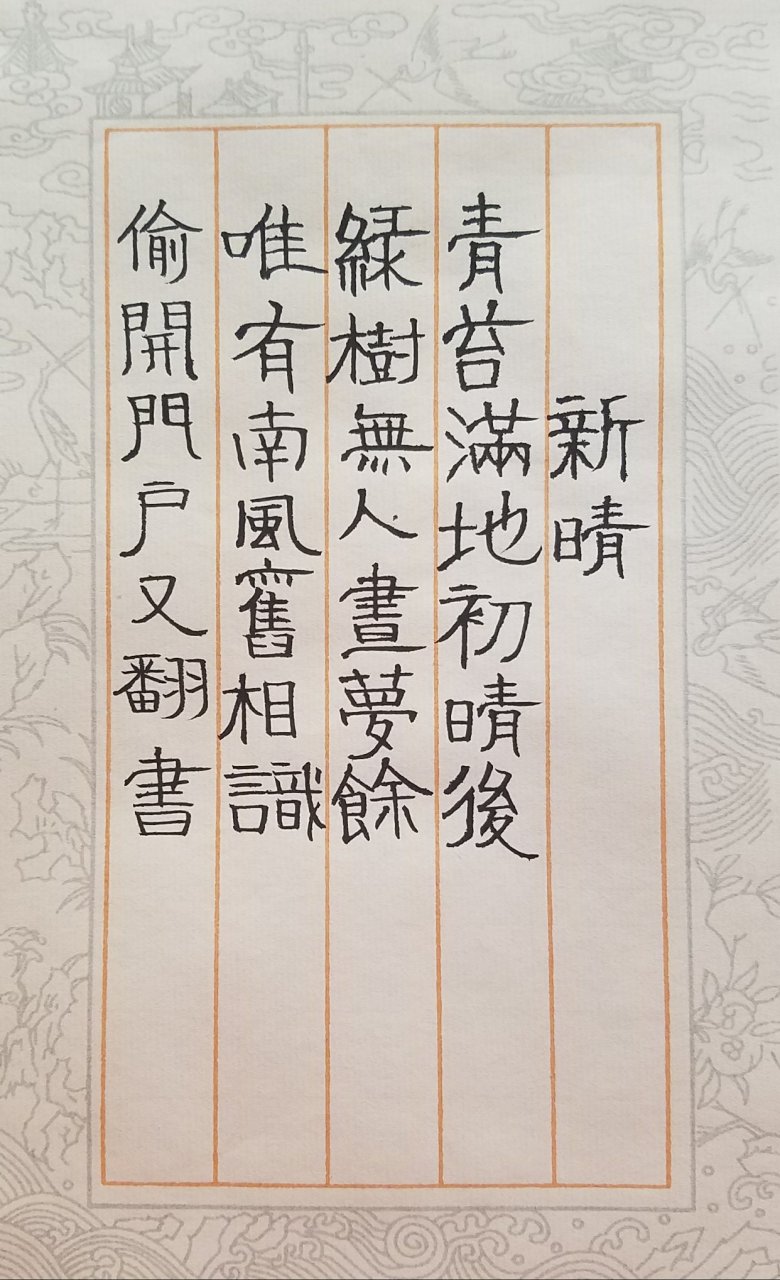 新晴
青苔滿地初晴後
綠樹無人晝夢餘
唯有南風舊相識
偷開門戶又翻書